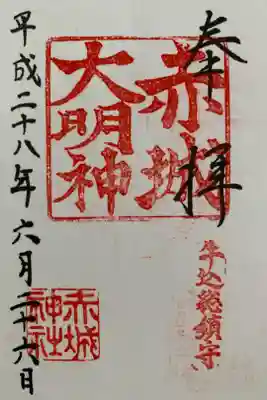 奉拝
赤城
大明神
牛込総鎮守
赤城
神社
平成二十八年六月二十六日